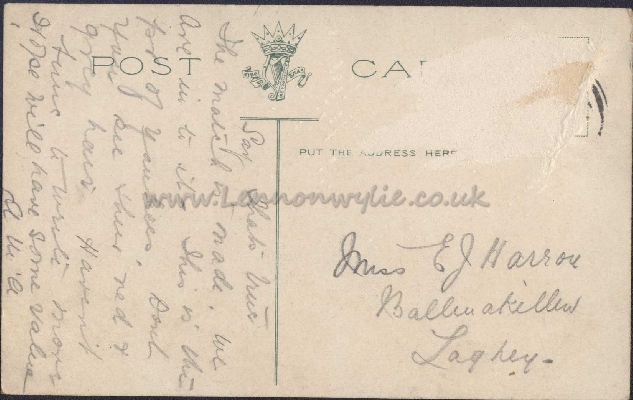 POST CA
PUT THE ADDRESS HERE
Say that's true
The match is made. We
are in to it. This is the
of Yankees. Don't
you see their red &
grey hair. Haven't
time to write more
Hope will have some value
www.Lennonwylie.co.uk
Miss E J Harron
Ballinakillew
Laghey-